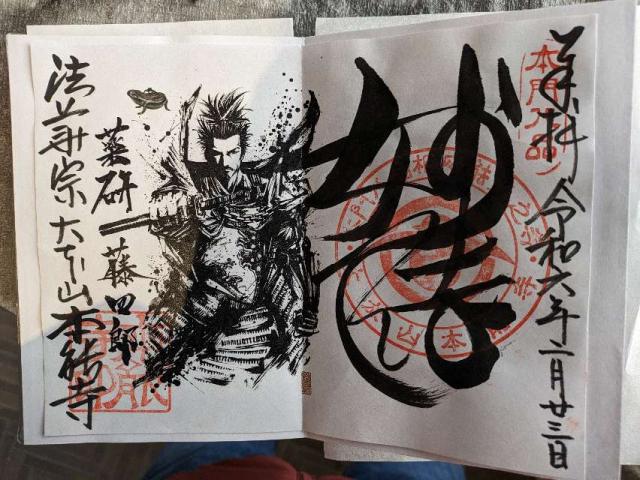 奉拝 令和六年二月廿三日
本門八品
妙法
薬研 藤四郎
法華宗 大本山 本能寺